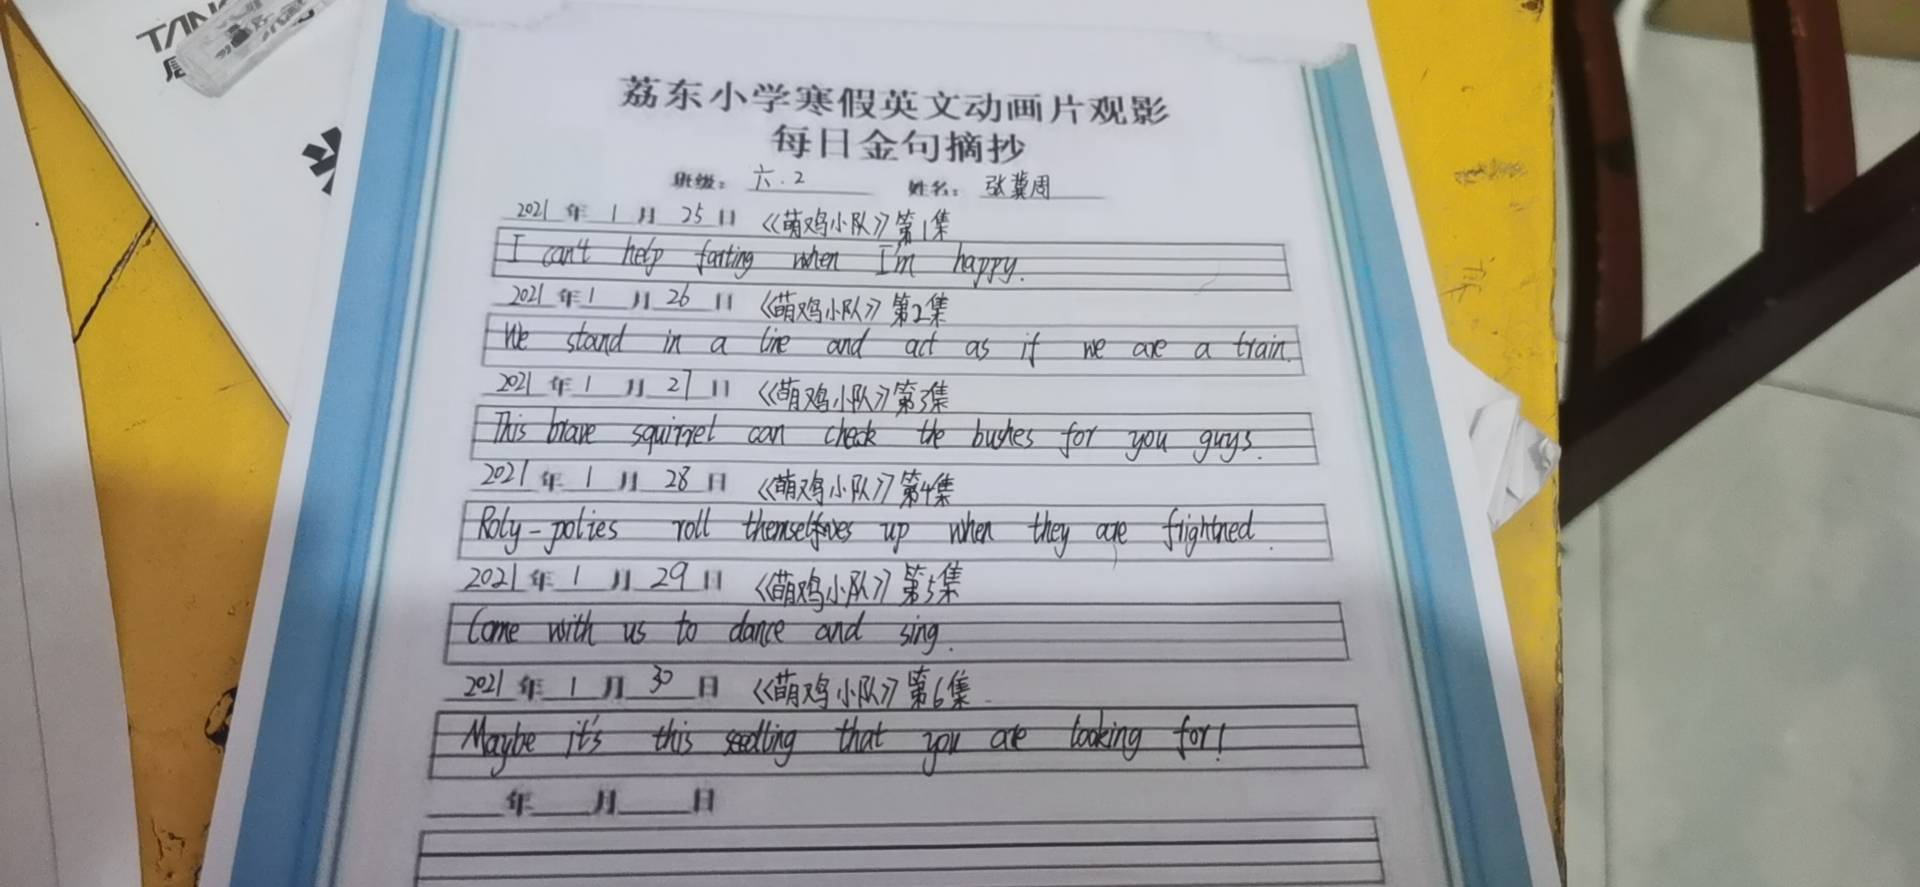 荔东小学寒假英文动画片观影
每日金句摘抄
班级： 六.2 姓名： 张冀周
2021 年 1 月 25 日 《萌鸡小队》第1集
I can't help farting when I'm happy.
2021 年 1 月 26 日 《萌鸡小队》第2集
We stand in a line and act as if we are a train.
2021 年 1 月 27 日 《萌鸡小队》第3集
This brave squirrel can check the bushes for you guys.
2021 年 1 月 28 日 《萌鸡小队》第4集
Roly-polies roll themselves up when they are frightned.
2021 年 1 月 29 日 《萌鸡小队》第5集
Come with us to dance and sing.
2021 年 1 月 30 日 《萌鸡小队》第6集
Maybe it's this seedling that you are looking for!
年 月 日